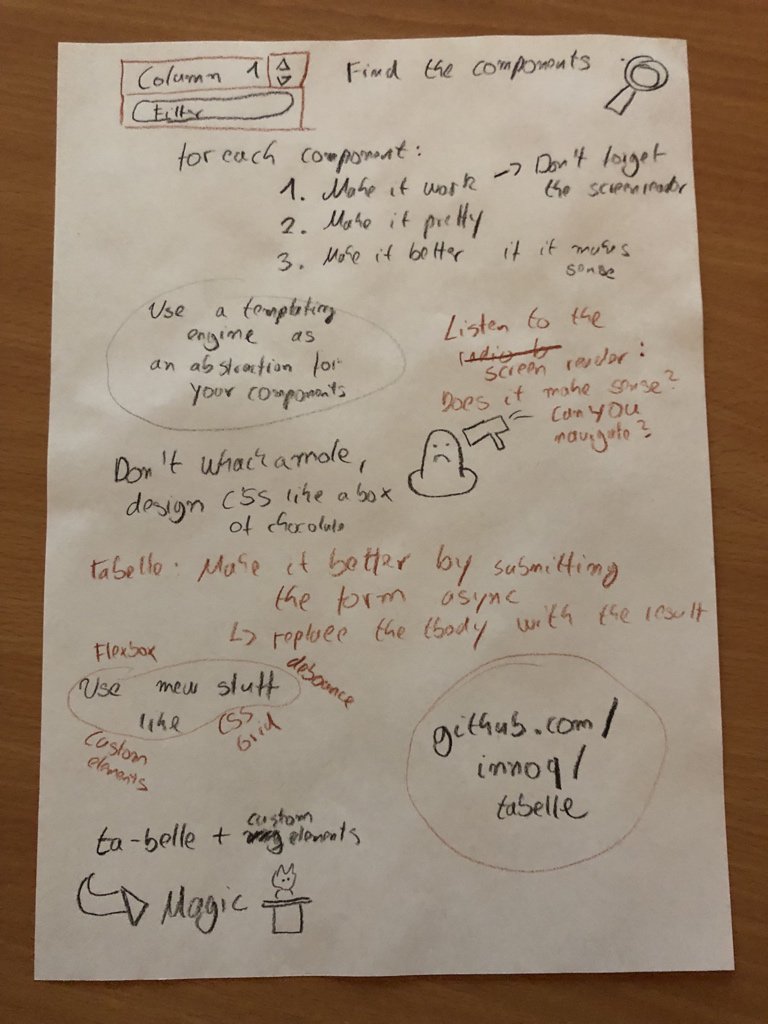 Column 1
Filter
Find the components
for each component:
1. Make it work -> Don't forget
the screenreader
2. Make it pretty
3. Make it better if it makes
sense
Use a templating
engine as
an abstraction for
your components
Listen to the
radio b
screen reader:
Does it make sense?
Can you
navigate?
Don't whack a mole,
design CSS like a box
of chocolate
tabelle: Make it better by submitting
the form async
↳ replace the tbody with the result
debounce
Flexbox
Use new stuff
like CSS
Grid
custom
elements
github.com/
innoq/
tabelle
ta-belle + custom
elements
Magic